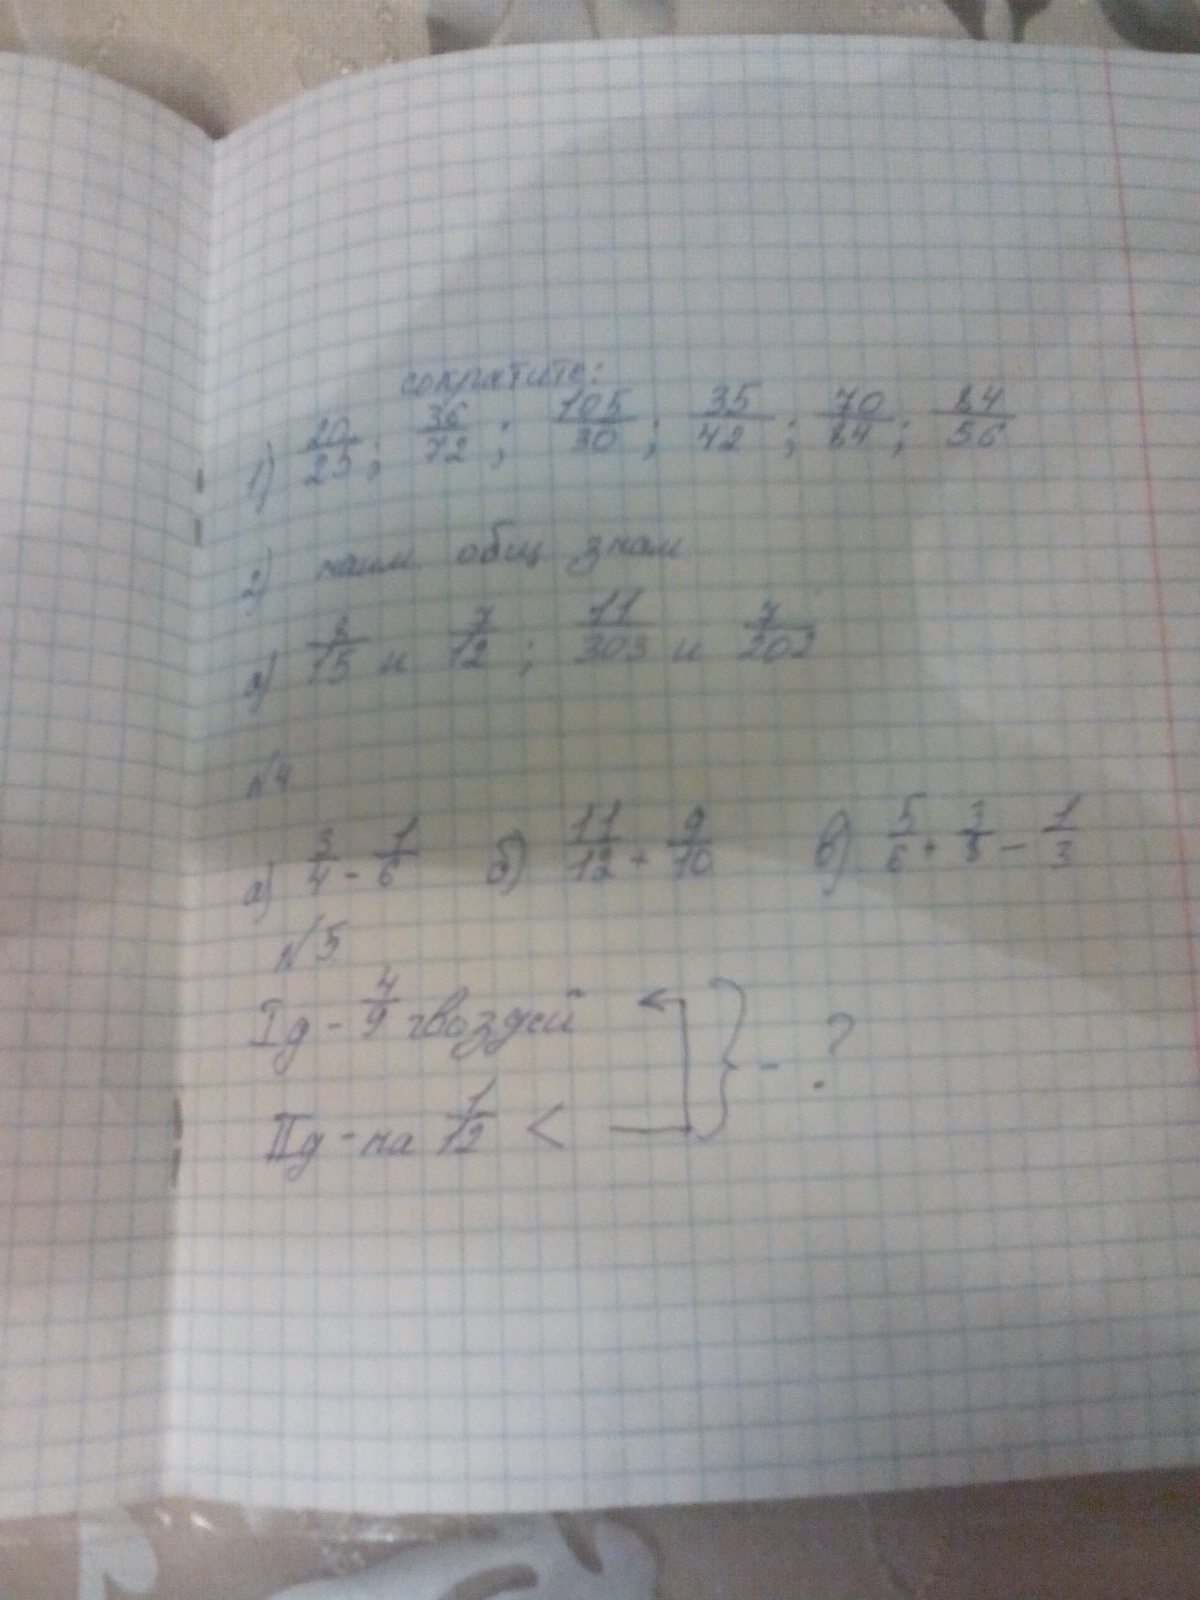 сократите:
1) 20/25; 36/72; 105/30; 35/42; 70/84; 84/56
2) наим общ знам
а) 8/15 и 7/12; 11/303 и 7/202
№4
а) 3/4 - 1/6 б) 11/12 + 9/10 в) 5/6 + 3/8 - 1/3
№5
I д - 4/9 гвоздей
} - ?
II д - на 1/12 <